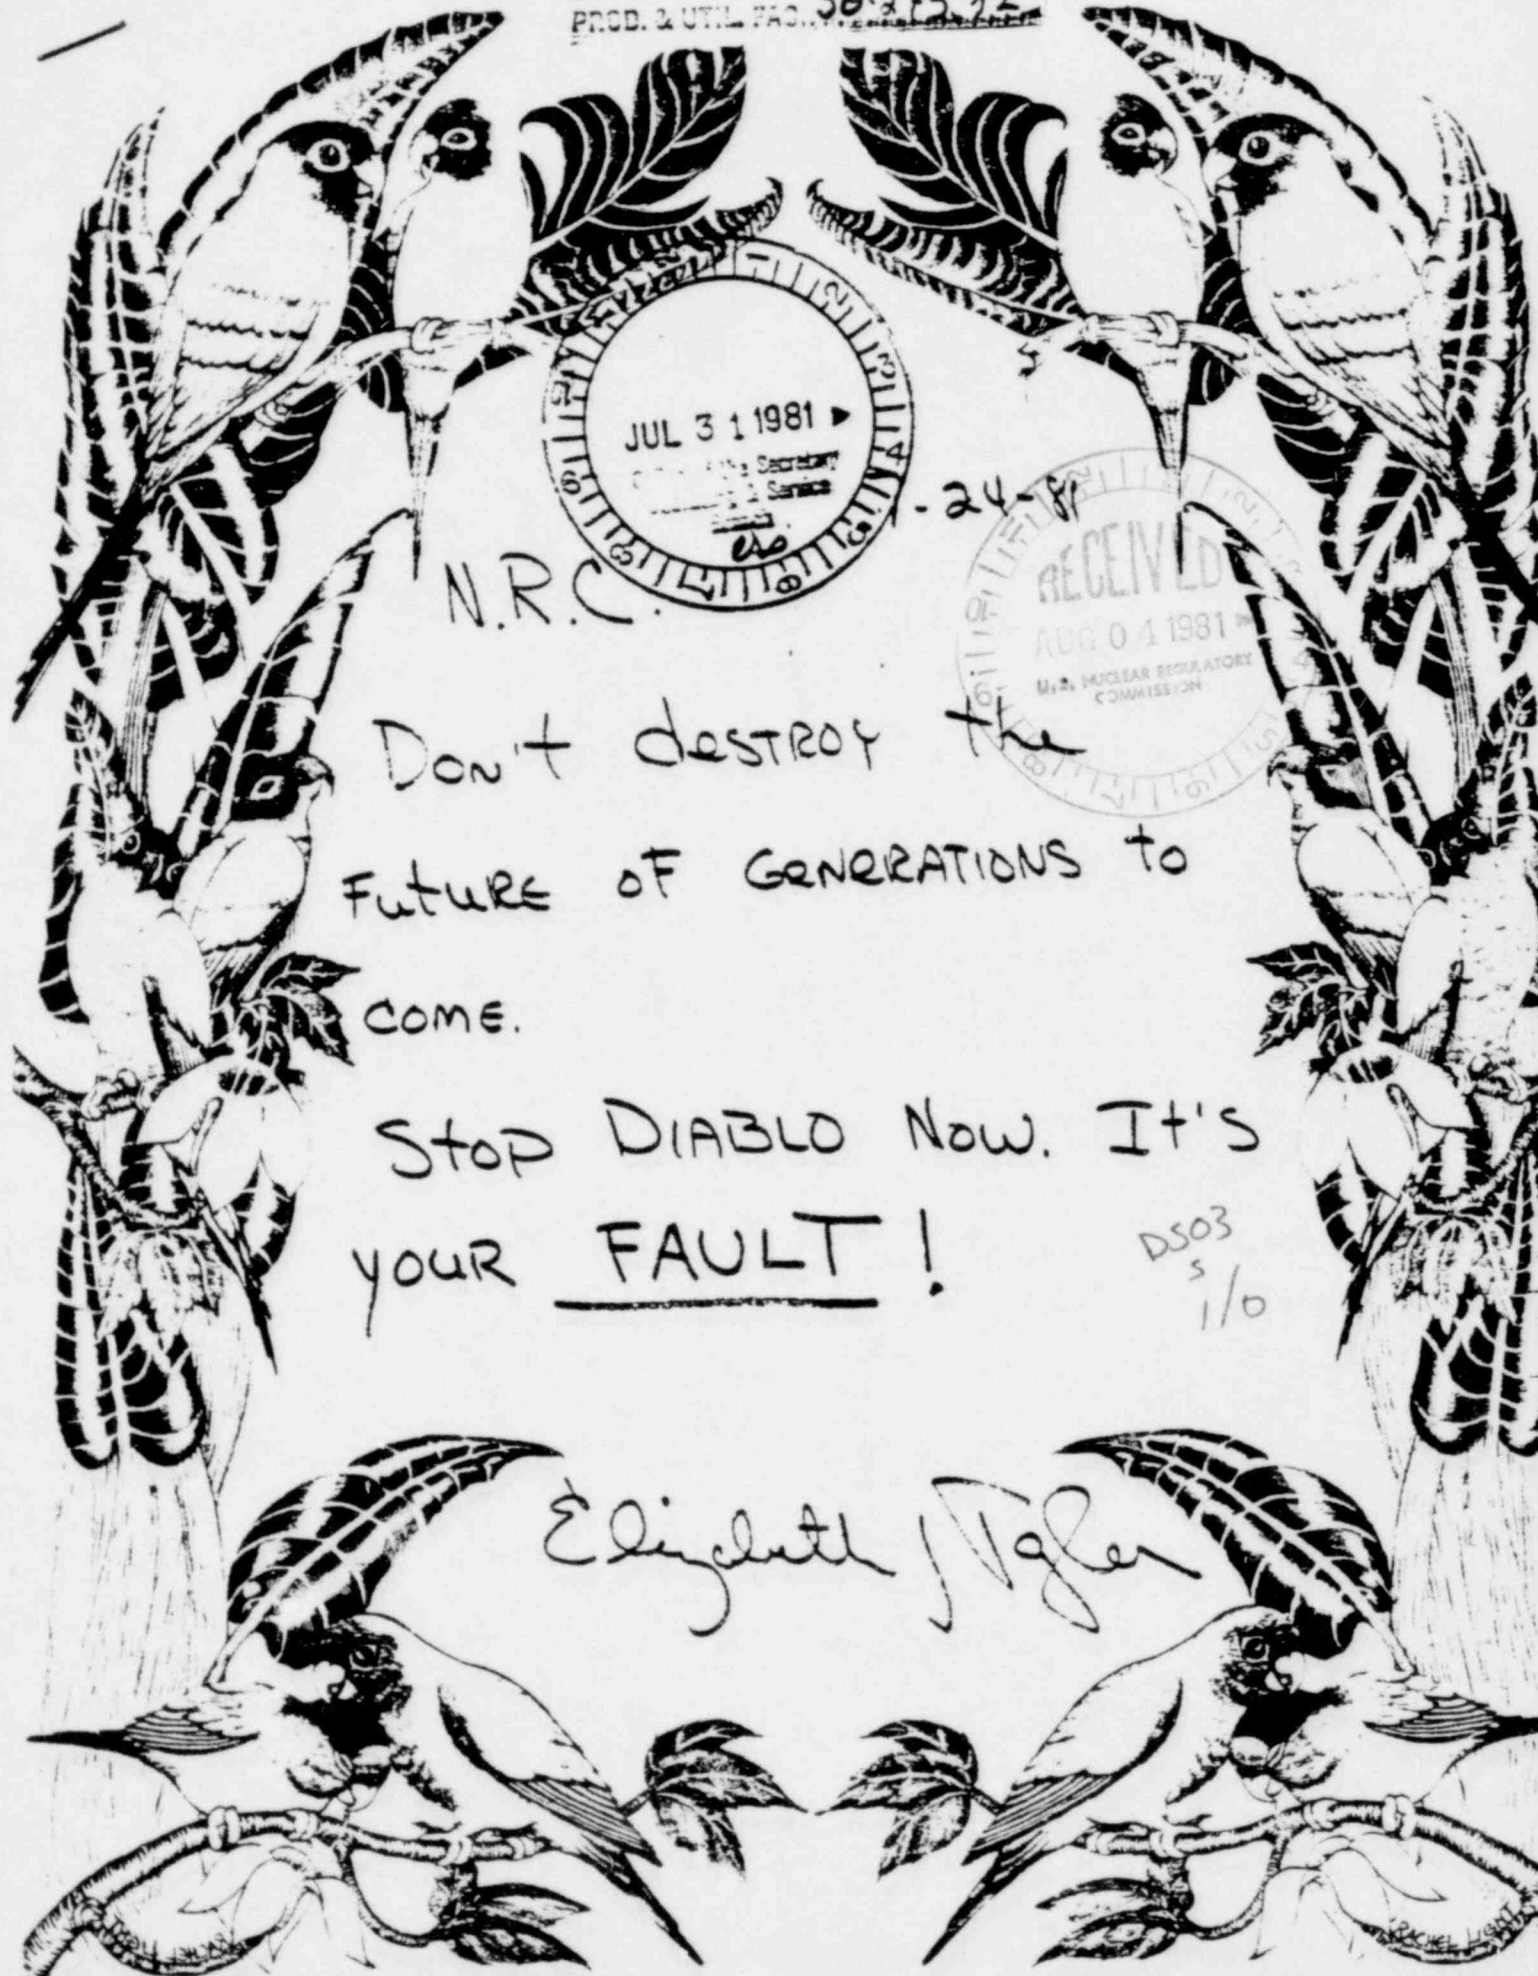 PROD. & UTIL. FAC.
JUL 3 1 1981
Secretary
& Service
-24-81
N.R.C.
RECEIVED
AUG 0 4 1981
U.S. NUCLEAR REGULATORY
COMMISSION
Don't destroy the
Future of Generations to
come.
Stop DIABLO Now. It's
your FAULT!
DS03
s
1/0
Elizabeth
RACHEL LIGHT